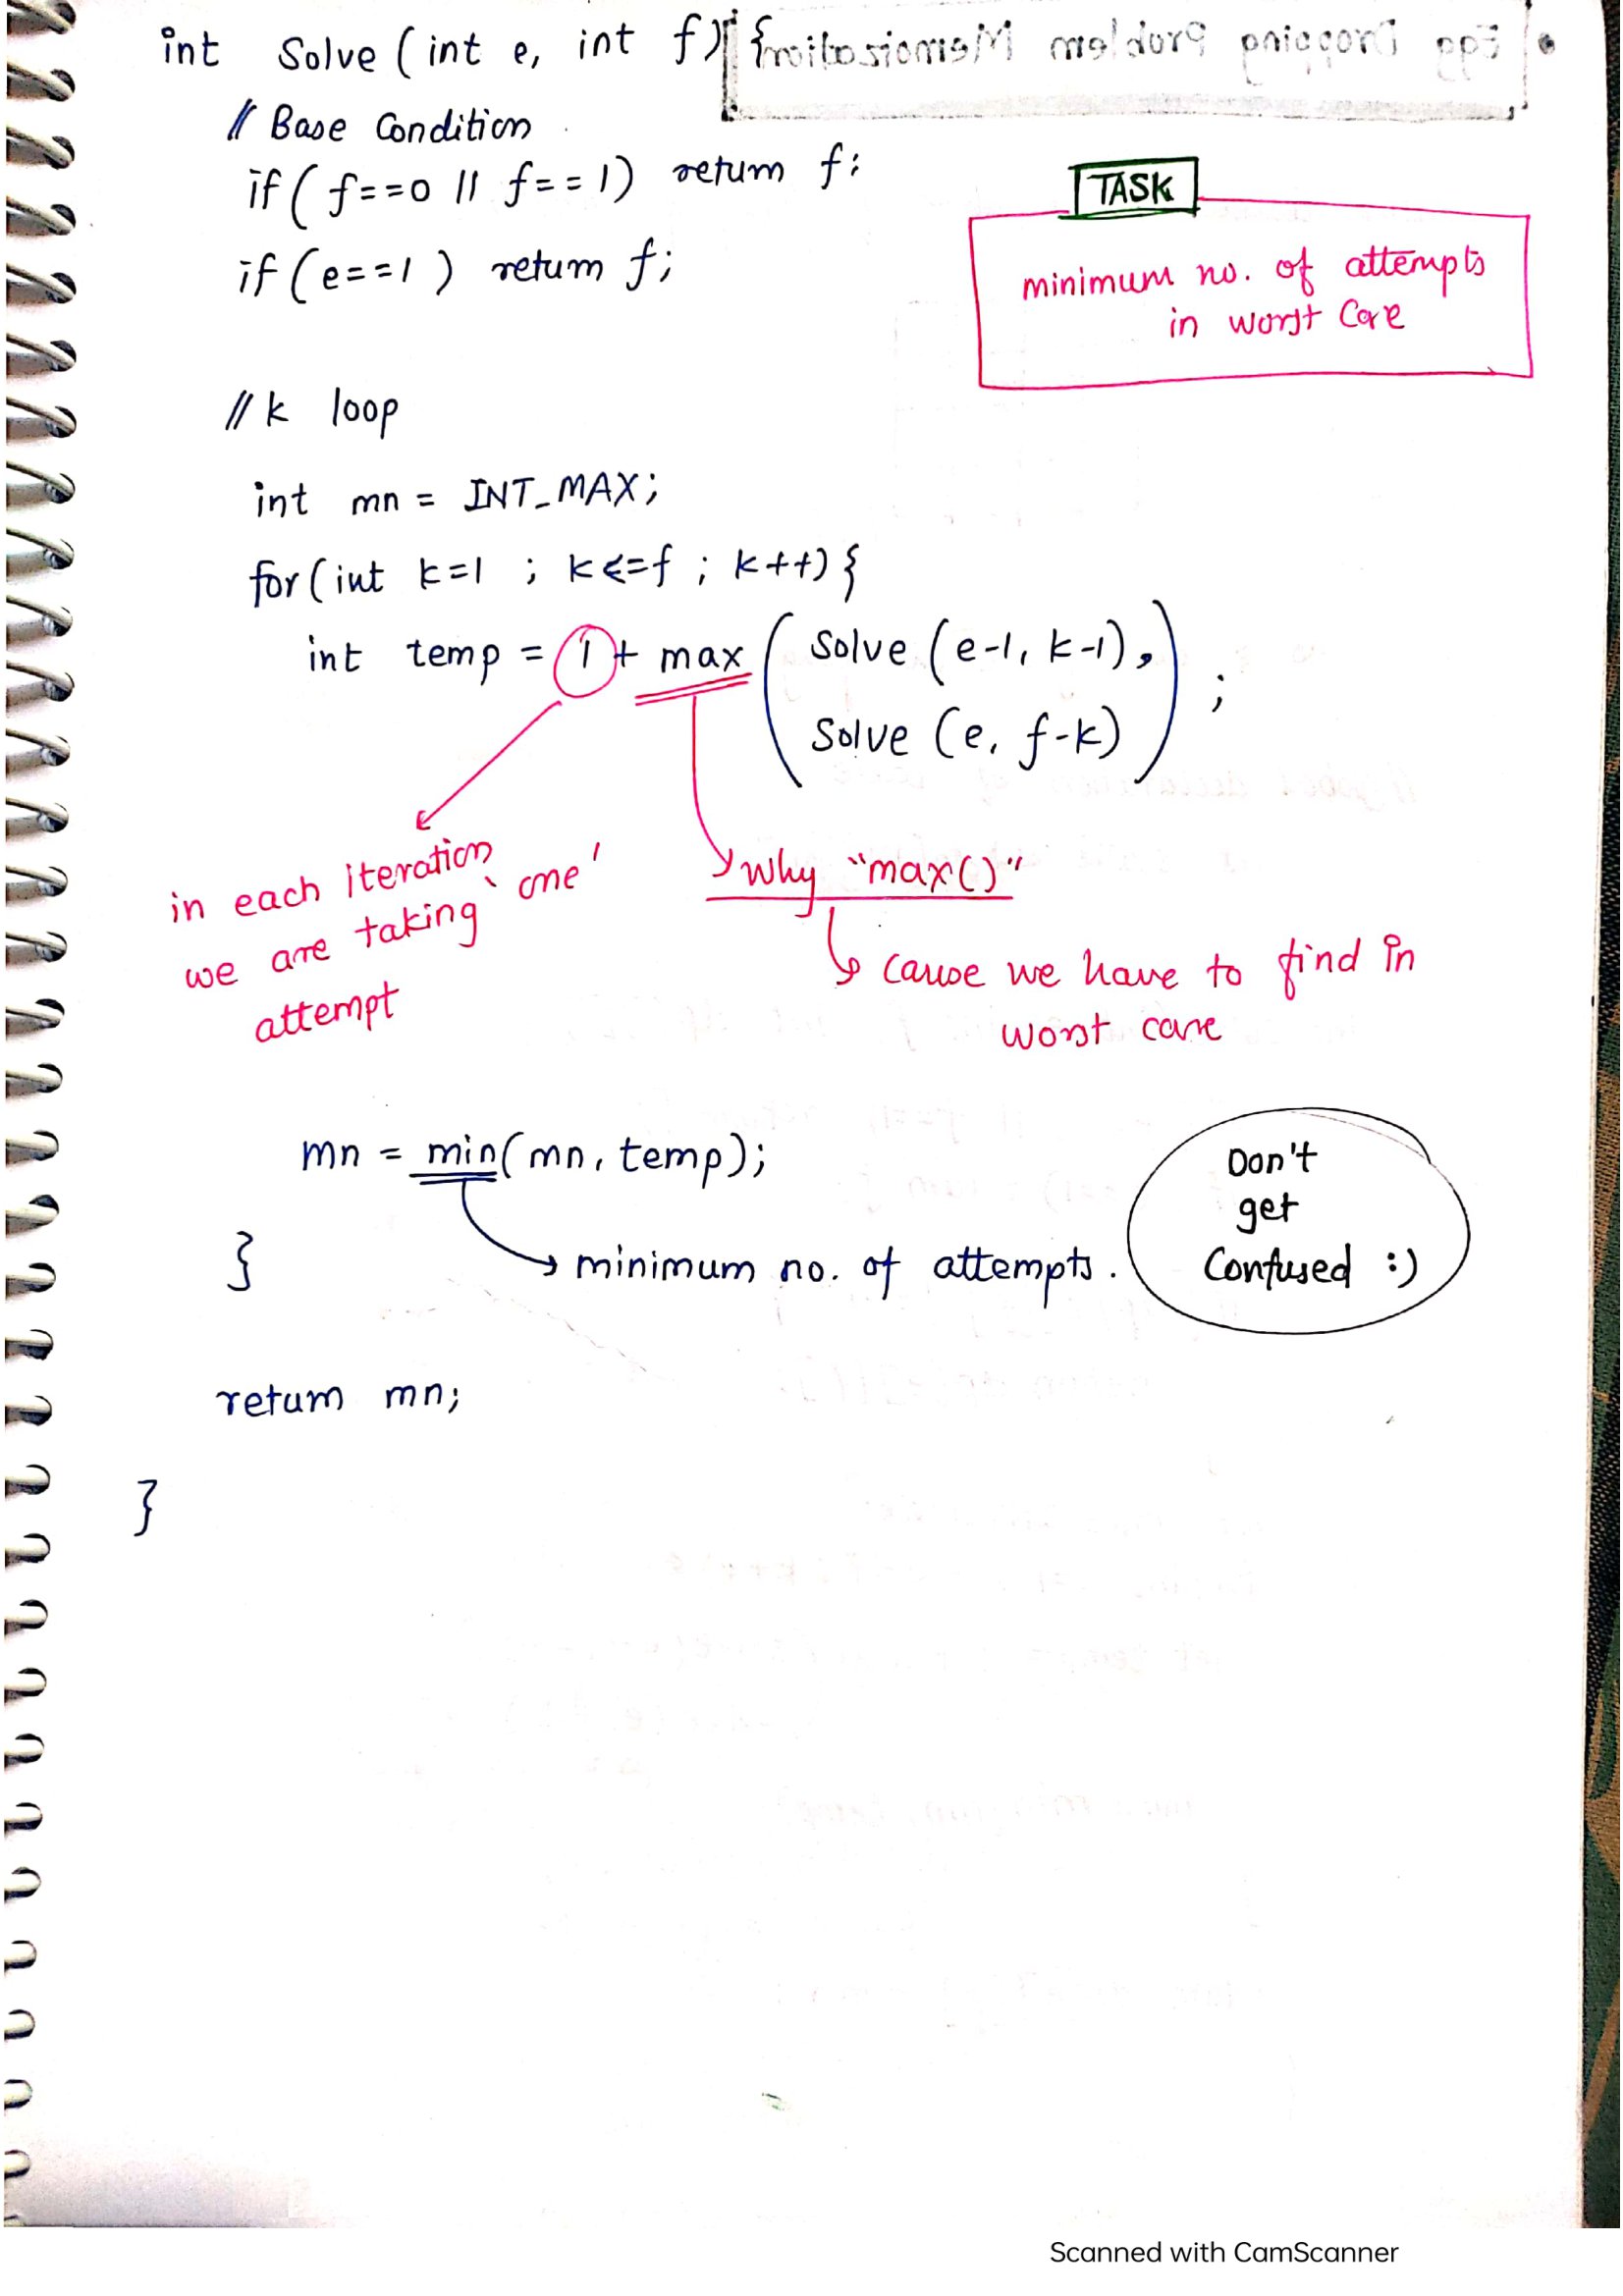 int Solve (int e, int f) {
// Base Condition
if ( f==0 || f==1) return f;
if (e==1) return f;
TASK
minimum no. of attempts
in worst case
// k loop
int mn = INT_MAX;
for (int k=1 ; k<=f ; k++) {
int temp = 1 + max ( Solve (e-1, k-1),
Solve (e, f-k) ) ;
in each iteration
we are taking 'one'
attempt
Why "max()"
cause we have to find in
worst case
mn = min( mn, temp);
}
minimum no. of attempts.
Don't
get
Confused :)
return mn;
}
Scanned with CamScanner